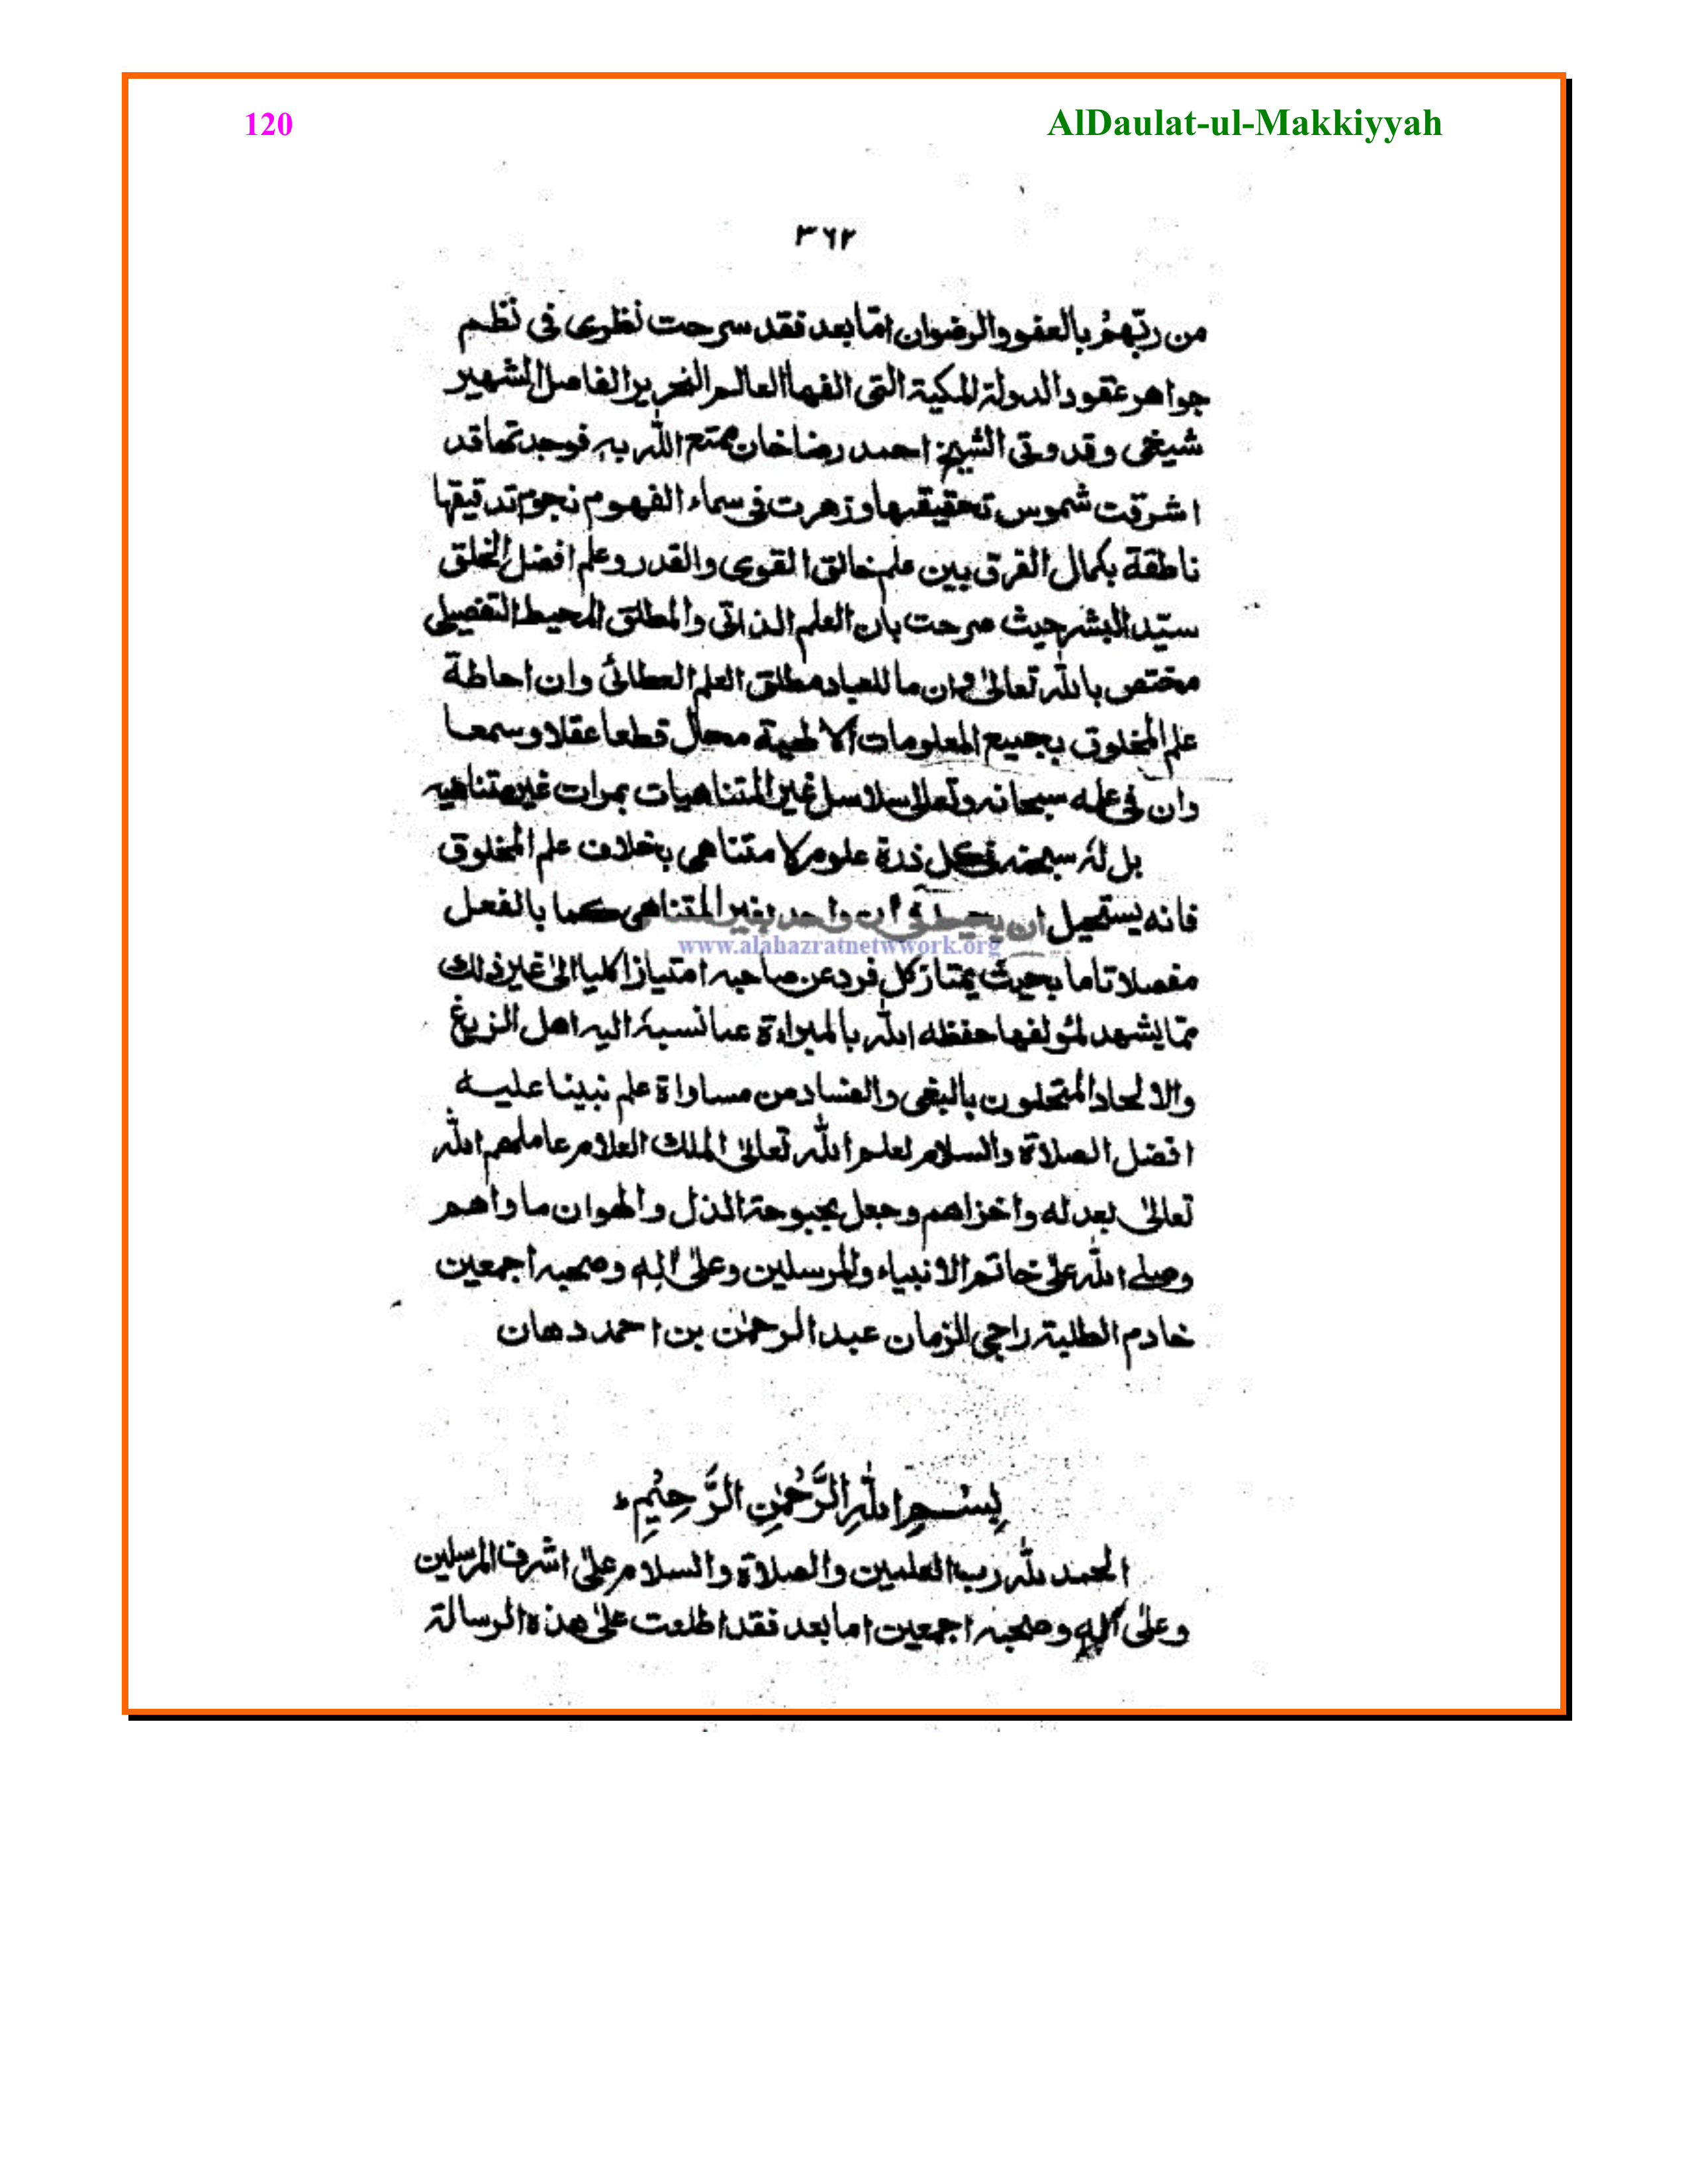 120
AlDaulat-ul-Makkiyyah
٣٦٢
من ربّهم بالعفو والرضوان امّا بعد فقد سرحت نظری فی نظم
جواهر عقود الدولة المكية التی الفها العالم النحرير الفاضل الشهير
شيخی وقدوتی الشيخ احمد رضا خان متع الله به فوجدتها قد
اشرقت شموس تحقيقها وزهرت فی سماء الفهوم نجوم تدقيقها
ناطقة بكمال الفرق بين علم خالق القوی والقدر وعلم افضل الخلق
سيّد البشر حيث صرحت بان العلم الذاتی والمطلق المحيط التفصيلی
مختص بالله تعالیٰ وان ما للعباد مطلق العلم العطائی وان احاطة
علم المخلوق بجميع المعلومات الالهية محال قطعا عقلا وسمعا
وان فی علمه سبحانه وتعالی سلاسل غير المتناهيات بمرات غير متناهيه
بل له سبحنه فی كل ذرة علوم لا متناهی بخلاف علم المخلوق
فانه يستحيل ان يحيط فی ان واحد بغير المتناهی كما بالفعل
www.alahazratnetwork.org
مفصلا تاما بحيث يمتاز كل فرد عن صاحبه امتيازا كليا الیٰ غير ذلك
ممّا يشهد لمؤلفها حفظه الله بالمبراءة عما نسبه اليه اهل الزيغ
والالحاد المتحلون بالبغی والعناد من مساواة علم نبينا عليه
افضل الصلاة والسلام لعلم الله تعالیٰ الملك العلام عاملهم الله
تعالیٰ بعدله واخزاهم وجعل بحبوحة الذل والهوان ماواهم
وصلے الله علیٰ خاتم الانبياء والمرسلين وعلیٰ اٰله وصحبه اجمعين
خادم الطلبة راجی الزمان عبد الرحمٰن بن احمد دهان
بِسْمِ اللهِ الرَّحْمٰنِ الرَّحِيْمِ ط
الحمد لله رب العلمين والصلاة والسلام علیٰ اشرف المرسلين
وعلیٰ اٰله وصحبه اجمعين اما بعد فقد اطلعت علیٰ هذه الرسالة